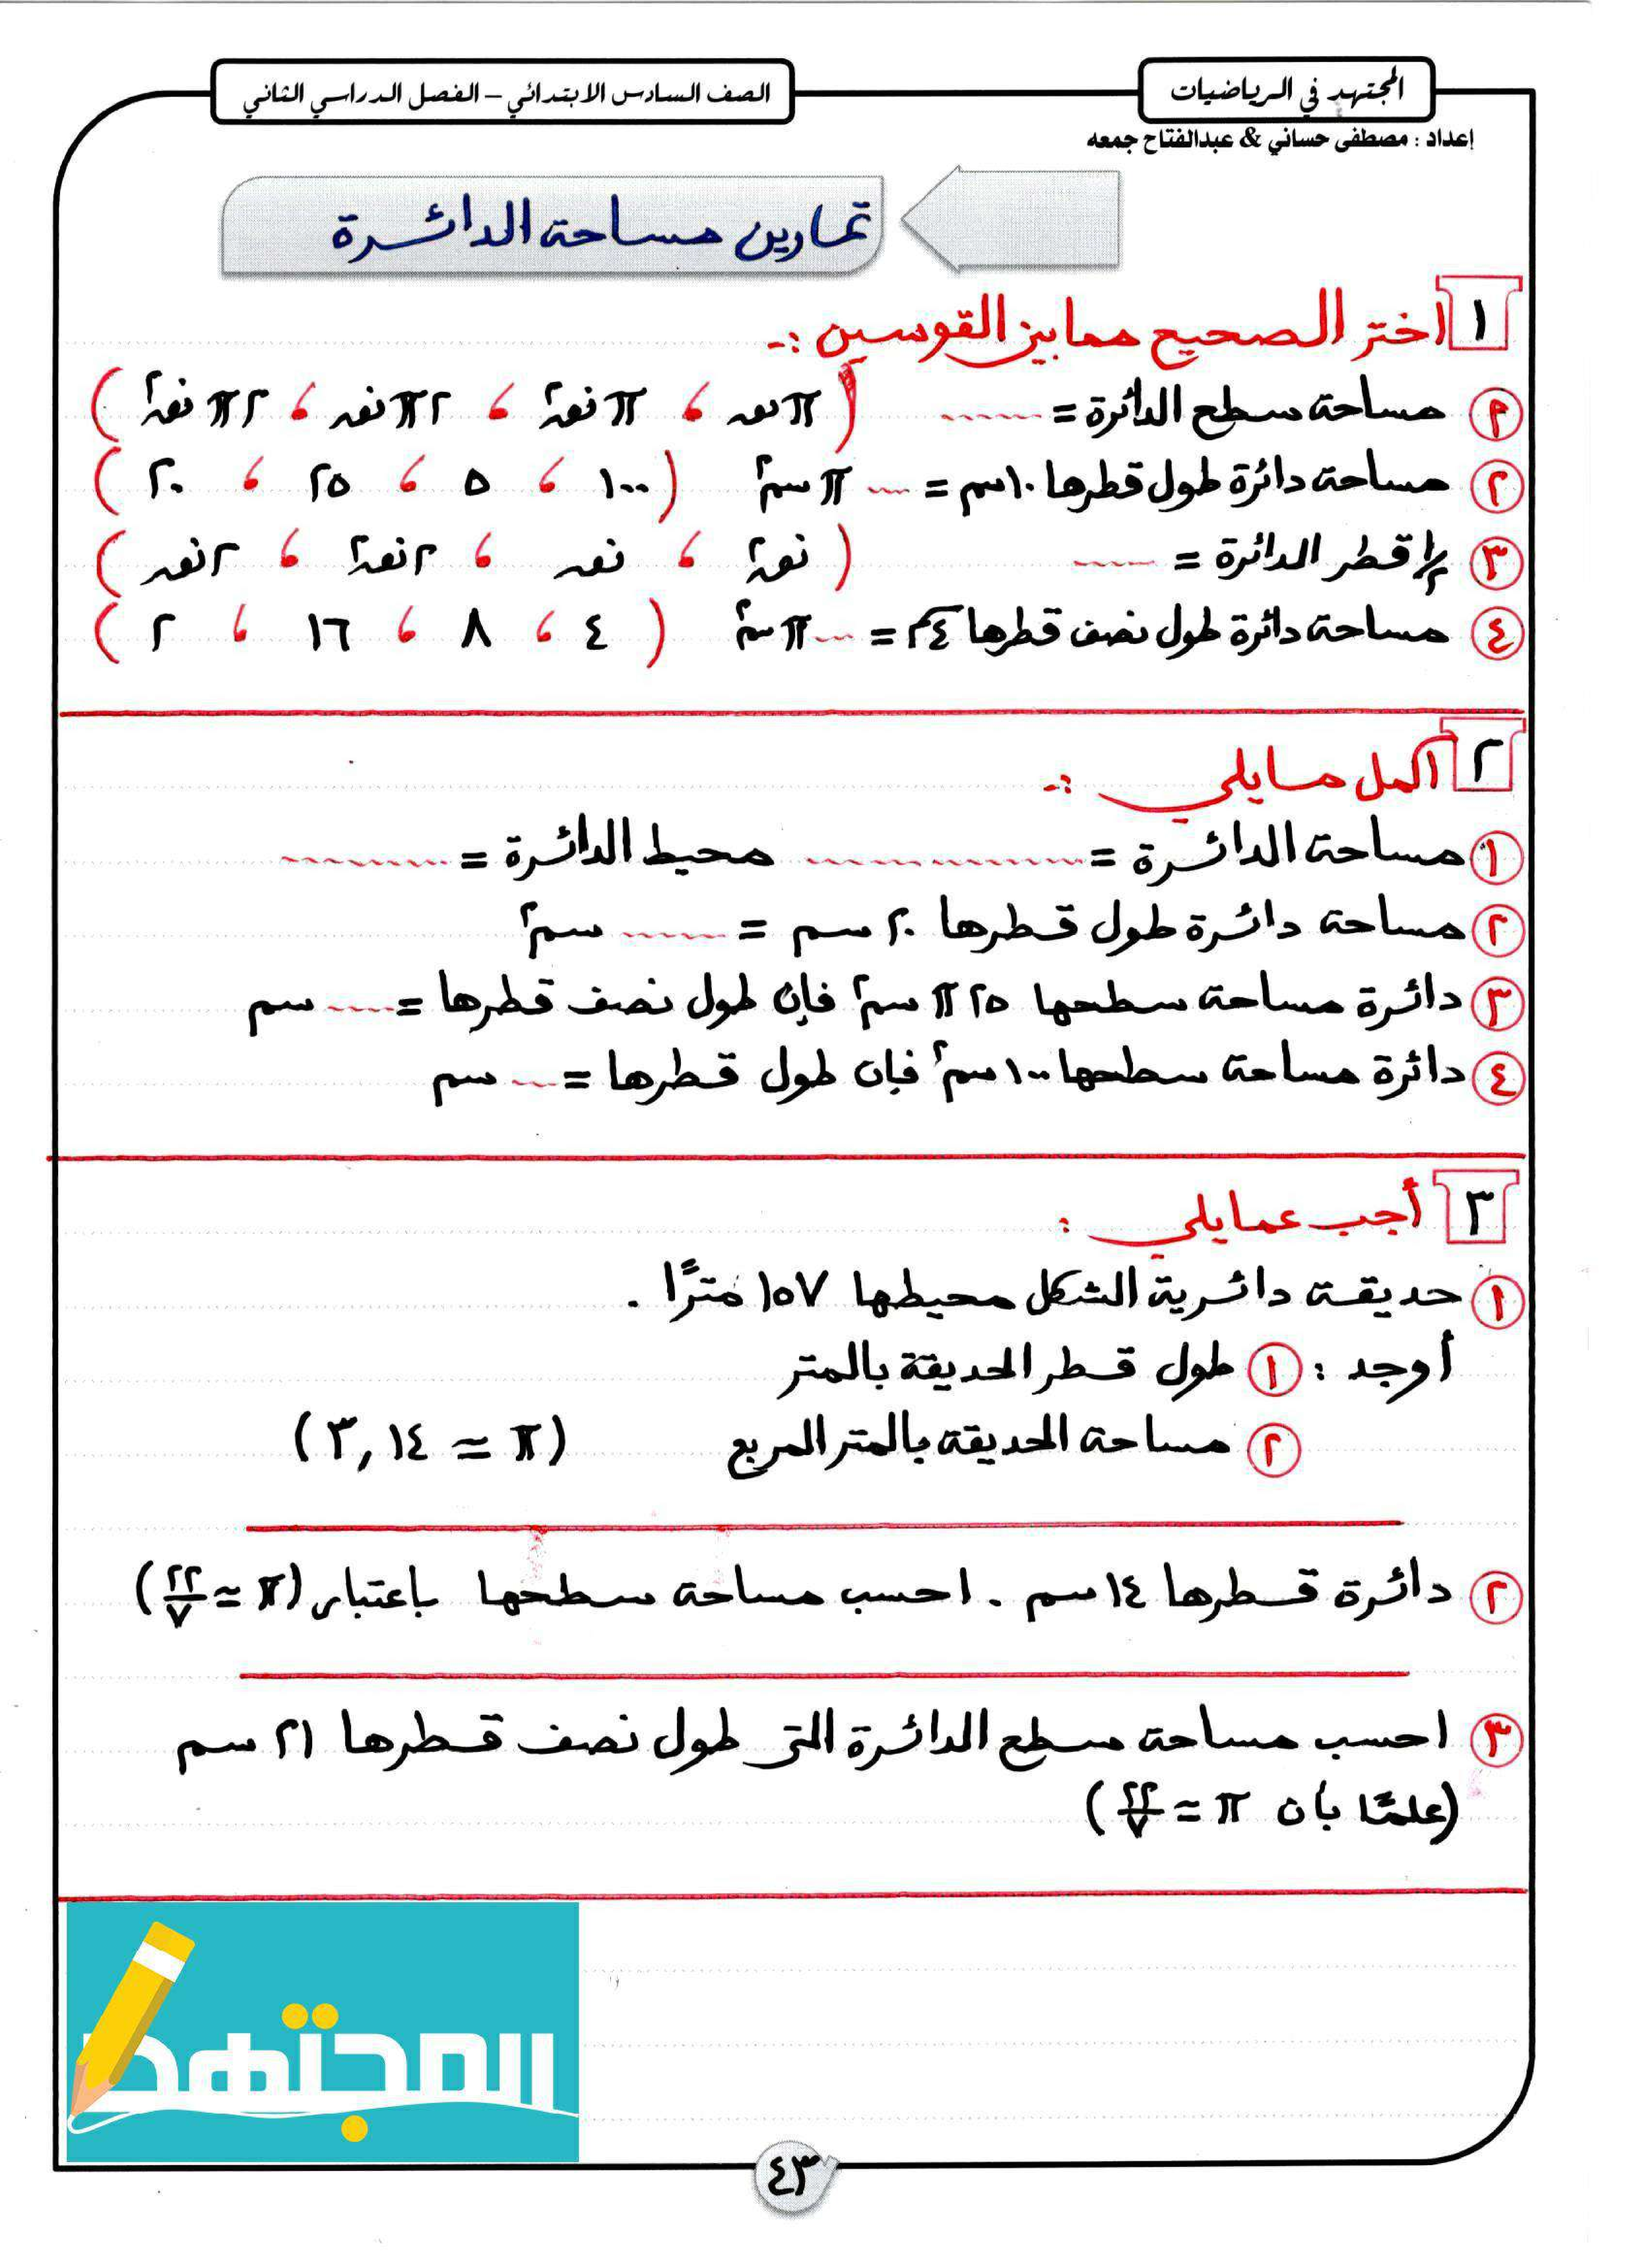 المجتهد في الرياضيات
الصف السادس الابتدائي – الفصل الدراسي الثاني
إعداد : مصطفى حساني & عبدالفتاح جمعه
تمارين مساحة الدائرة
١ اختر الصحيح مما بين القوسين :-
مساحة سطح الدائرة = ...... ( π نق ، π نق٢ ، ٢ π نق ، ٢ π نق٢ )
٢ مساحة دائرة طول قطرها ١٠ سم = .... π سم٢ ( ١٠٠ ، ٥ ، ٢٥ ، ٢٠ )
٣ ١/٢ قطر الدائرة = ...... ( نق٢ ، نق ، ٢ نق٢ ، ٢ نق )
٤ مساحة دائرة طول نصف قطرها ٤ سم = .... π سم٢ ( ٤ ، ٨ ، ١٦ ، ٢ )
٢ اكمل مايلي :-
١ مساحة الدائرة = ............ محيط الدائرة = .........
٢ مساحة دائرة طول قطرها ٢٠ سم = ...... سم٢
٣ دائرة مساحة سطحها ٢٥ π سم٢ فإن طول نصف قطرها = .... سم
٤ دائرة مساحة سطحها ١٠٠ سم٢ فإن طول قطرها = .... سم
٣ أجب عمايلي :
١ حديقة دائرية الشكل محيطها ١٥٧ مترًا .
أوجد : ١ طول قطر الحديقة بالمتر
٢ مساحة الحديقة بالمتر المربع (π ≃ ٣,١٤)
٢ دائرة قطرها ١٤ سم . احسب مساحة سطحها باعتبار (π ≃ ٢٢/٧)
٣ احسب مساحة سطح الدائرة التى طول نصف قطرها ٢١ سم
(علمًا بأن π ≃ ٢٢/٧)
المجتهد
٤٣